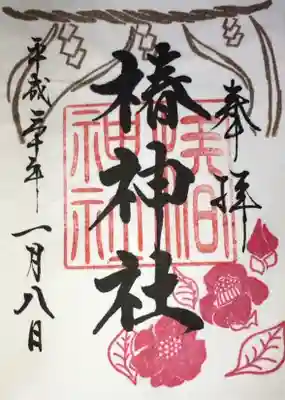 奉拝
椿神社
平成三十年一月八日
神社